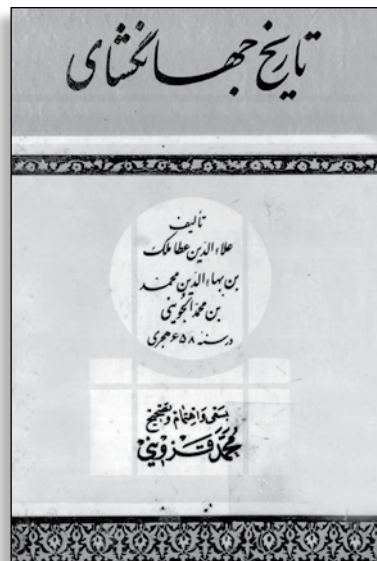 تاریخ جهانگشای
تألیف
علاءالدین عطاملک
بن بهاءالدین محمد
بن محمد الجوینی
در سنهٔ ۶۵۸ هجری
بسعی و اهتمام و تصحیح
محمد قزوینی